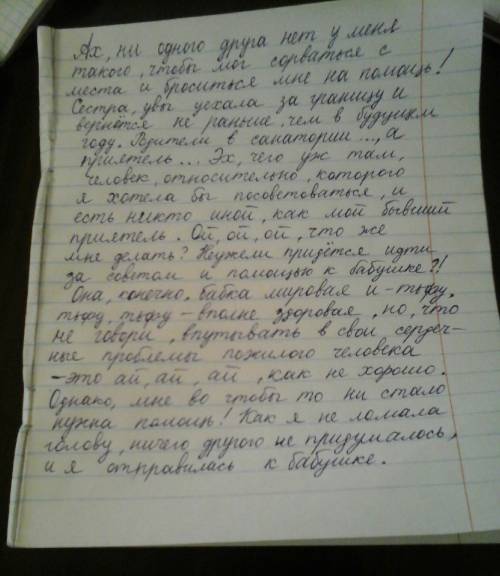 Ах, ни одного друга нет у меня
такого, чтобы мог сорваться с
места и броситься мне на помощь!
Сестра, увы уехала за границу и
вернётся не раньше, чем в будущем
году. Родители в санатории ..., а
приятель ... Эх, чего уж там,
человек, относительно, которого
я хотела бы посоветоваться, и
есть никто иной, как мой бывший
приятель. Ой, ой, ой, что же
мне делать? Неужели придётся идти
за советом и помощью к бабушке?!
Она, конечно, бабка мировая и - тьфу,
тьфу, тьфу - вполне здоровая, но, что
не говори, впутывать в свои сердеч-
ные проблемы пожилого человека
- это ай, ай, ай, как не хорошо.
Однако, мне во чтобы то ни стало
нужна помощь! Как я не ломала
голову, ничего другого не придумалось,
и я отправилась к бабушке.